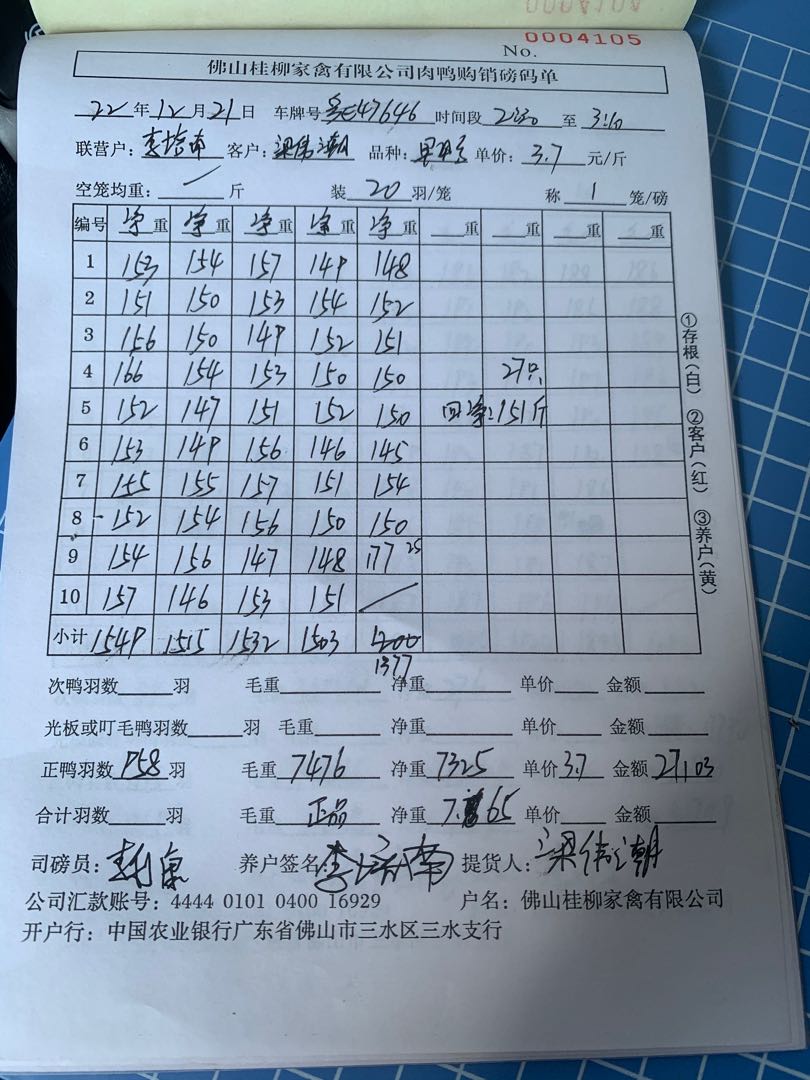 0004104
No. 0004105
佛山桂柳家禽有限公司肉鸭购销磅码单
22年12月21日 车牌号 47646 时间段 2:30 至 3:10
联营户: 李培南 客户: 梁伟潮 品种: 单价: 3.7 元/斤
空笼均重: / 斤 装 20 羽/笼 称 1 笼/磅
编号 净重 净重 净重 净重 净重 重 重 重 重
1 153 154 157 149 148
2 151 150 153 154 152
3 156 150 149 152 151
4 166 154 153 150 150 27只
5 152 147 151 152 150 回净: 151斤
6 153 149 156 146 145
7 155 155 157 151 154
8 152 154 156 150 150
9 154 156 147 148 177 25
10 157 146 153 151 /
小计 1549 1515 1532 1503 1200
1377
次鸭羽数 羽 毛重 净重 单价 金额
光板或叮毛鸭羽数 羽 毛重 净重 单价 金额
正鸭羽数 958 羽 毛重 7476 净重 7325 单价 3.7 金额 27103
合计羽数 羽 毛重 正品 净重 7.65 单价 金额
司磅员: 养户签名: 李培南 提货人: 梁伟潮
公司汇款账号: 4444 0101 0400 16929 户名: 佛山桂柳家禽有限公司
开户行: 中国农业银行广东省佛山市三水区三水支行
①存根(白) ②客户(红) ③养户(黄)